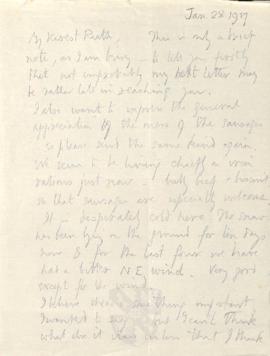 Jan. 28 1917
My dearest Ruth, This is only a brief
note, as I am busy – to tell you firstly
that not improbably my next letter may
be rather late in reaching you.
I also want to the general
appreciation of the mess of the sausages
so please send the same kind again.
We seem to be having chiefly
rations just now – bully beef & biscuit
so that sausages are especially welcome.
It is desperately cold here. The snow
has been lying on the ground for ten days
now & for the last four we have
had a bitter N.E. wind. Very good
except for the wind.
I there one thing
I wanted to say I can't think
what else it was unless that I think